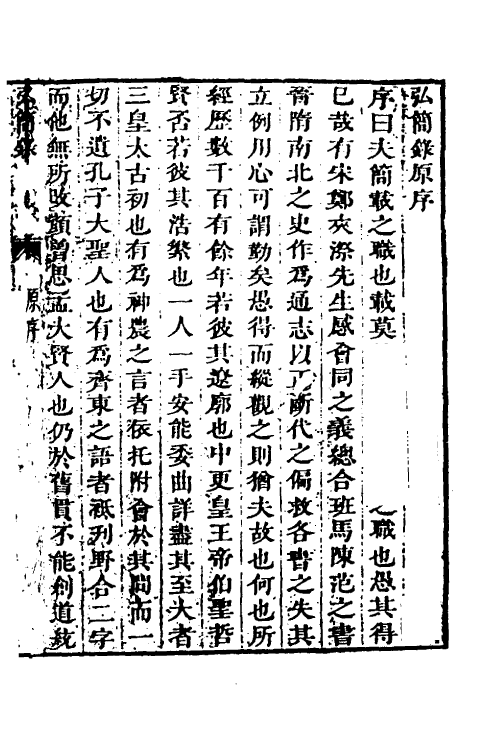 弘簡錄原序
序曰夫簡載之職也載莫 之職也愚其得
已哉有宋鄭夾漈先生感會同之義總合班馬陳范之書
晉隋南北之史作爲通志以 斷代之偏救各書之失其
立例用心可謂勤矣愚得而縱觀之則猶夫故也何也所
經歷數千百有餘年若彼其遼廓也中更皇王帝伯聖哲
賢否若彼其浩繁也一人一手安能委曲詳盡其至大者
三皇太古初也有爲神農之言者依托附會於其間而一
切不道孔子大聖人也有爲齊東之語者祇列野合二字
而他無所 顏曾思孟大賢人也仍於舊貫不能創道
弘簡錄
原序